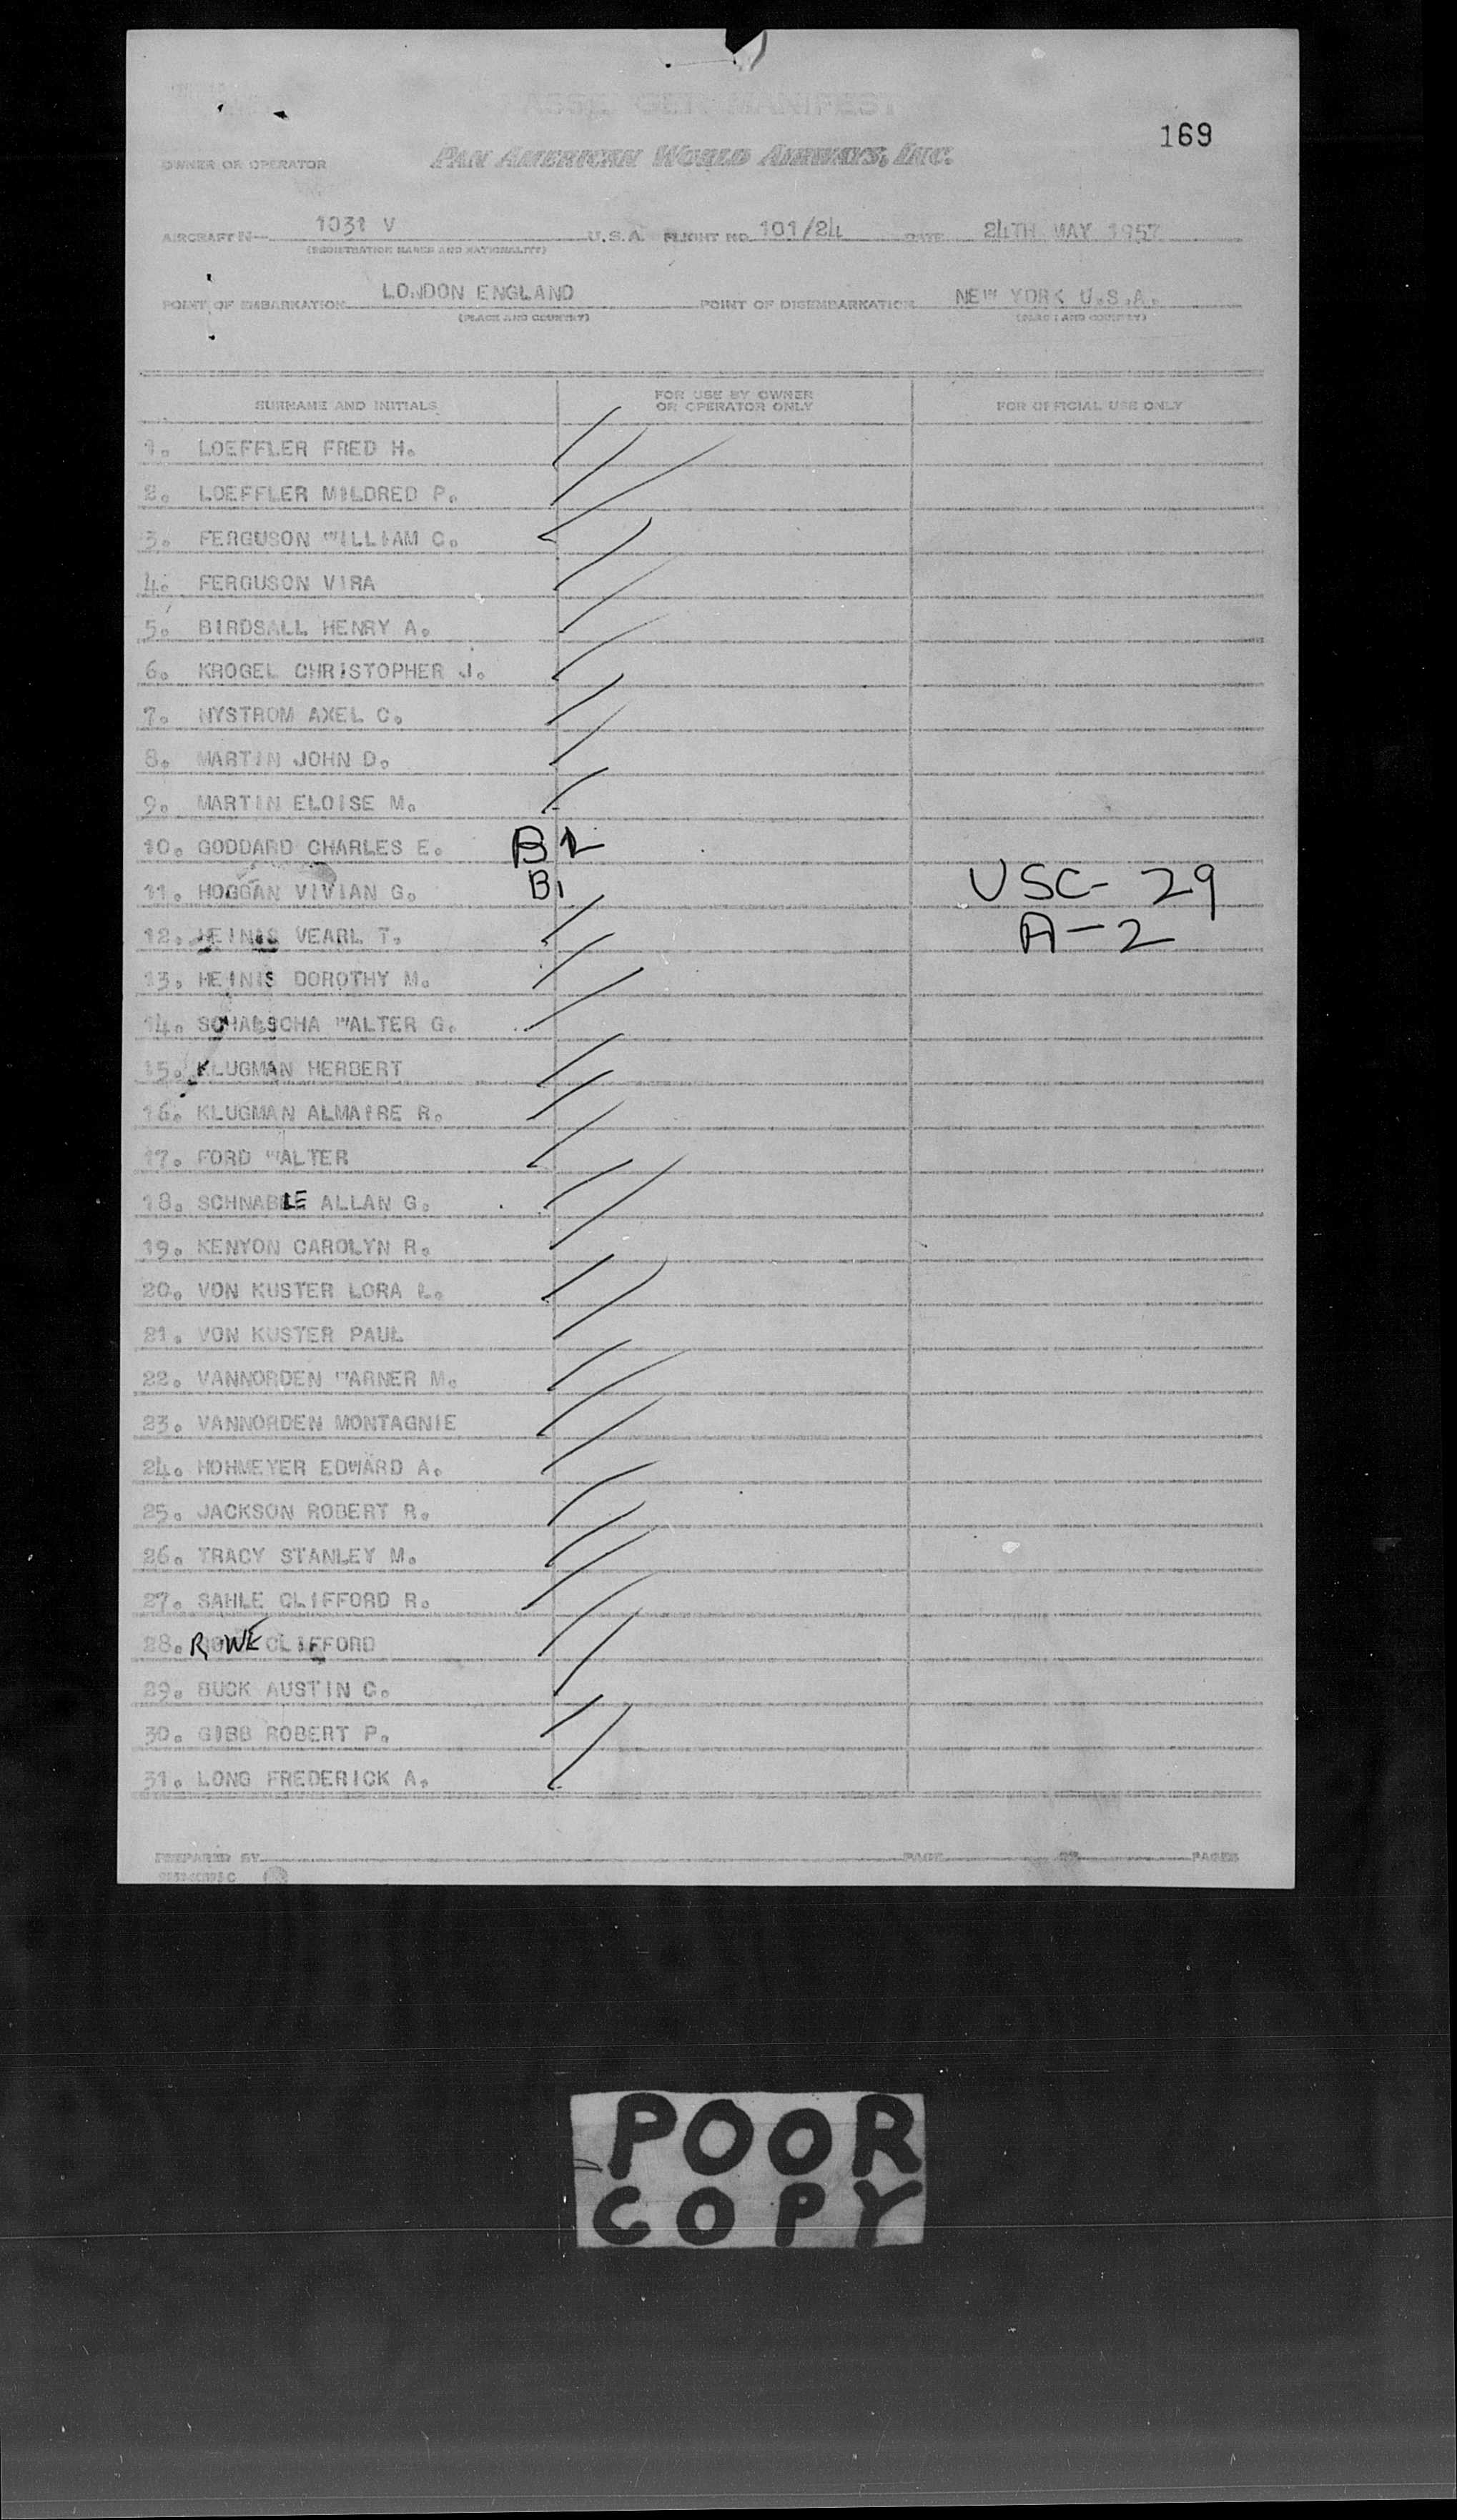 PASSENGER MANIFEST
169
OWNER OR OPERATOR PAN AMERICAN WORLD AIRWAYS, INC.
AIRCRAFT N— 1031 V U.S.A. FLIGHT NO. 101/24 DATE 24TH MAY 1957
(REGISTRATION MARKS AND NATIONALITY)
POINT OF EMBARKATION LONDON ENGLAND POINT OF DISEMBARKATION NEW YORK U.S.A.
(PLACE AND COUNTRY) (PLACE AND COUNTRY)
SURNAME AND INITIALS FOR USE BY OWNER OR OPERATOR ONLY FOR OFFICIAL USE ONLY
1. LOEFFLER FRED H.
2. LOEFFLER MILDRED P.
3. FERGUSON WILLIAM C.
4. FERGUSON VIRA
5. BIRDSALL HENRY A.
6. KROGEL CHRISTOPHER J.
7. NYSTROM AXEL C.
8. MARTIN JOHN D.
9. MARTIN ELOISE M.
10. GODDARD CHARLES E. B
11. HOGGAN VIVIAN G. B1 USC- 29
12. HEINIS VEARL T. A-2
13. HEINIS DOROTHY M.
14. SCHALSCHA WALTER G.
15. KLUGMAN HERBERT
16. KLUGMAN ALMAIRE R.
17. FORD WALTER
18. SCHNABLE ALLAN G.
19. KENYON CAROLYN R.
20. VON KUSTER LORA L.
21. VON KUSTER PAUL
22. VANNORDEN WARNER M.
23. VANNORDEN MONTAGNIE
24. HOHMEYER EDWARD A.
25. JACKSON ROBERT R.
26. TRACY STANLEY M.
27. SAHLE CLIFFORD R.
28. ROWE CLIFFORD
29. BUCK AUSTIN C.
30. GIBB ROBERT P.
31. LONG FREDERICK A.
PREPARED BY PAGE OF PAGES
POOR
COPY